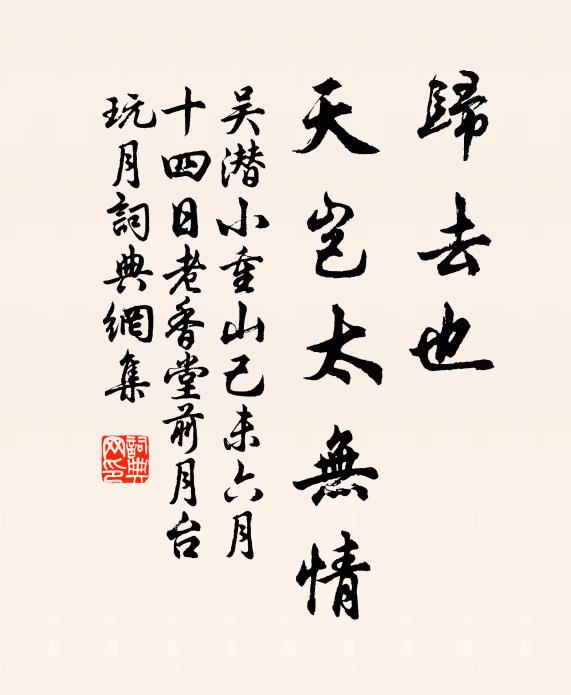 歸去也
天豈太無情
吴潛小重山己未六月
十四日老香堂前月台
玩月詞典網集
詞典网印